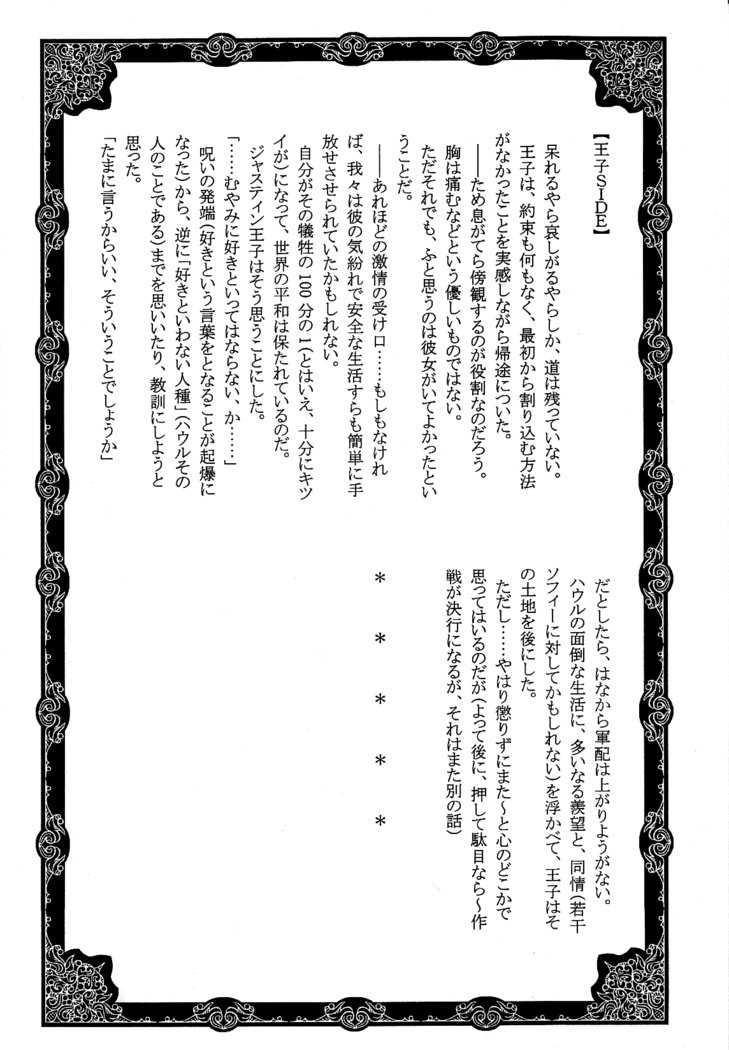 【王子SIDE】
　呆れるやら哀しがるやらしか、道は残っていない。
　王子は、約束も何もなく、最初から割り込む方法
がなかったことを実感しながら帰途についた。
　――ため息がてら傍観するのが役割なのだろう。
　胸は痛むなどという優しいものではない。
　ただそれでも、ふと思うのは彼女がいてよかったとい
うことだ。
　――あれほどの激情の受け口……もしもなけれ
ば、我々は彼の気紛れで安全な生活すらも簡単に手
放せさせられていたかもしれない。
　自分がその犠牲の100分の1(とはいえ、十分にキツ
イが)になって、世界の平和は保たれているのだ。
　ジャスティン王子はそう思うことにした。
「……むやみに好きといってはならない、か……」
　呪いの発端(好きという言葉をとなることが起爆に
なった)から、逆に「好きといわない人種」(ハウルその
人のことである)までを思いいたり、教訓にしようと
思った。
「たまに言うからいい、そういうことでしょうか」
　だとしたら、はなから軍配は上がりようがない。
　ハウルの面倒な生活に、多いなる羨望と、同情(若干
ソフィーに対してかもしれない)を浮かべて、王子はそ
の土地を後にした。
　ただし……やはり懲りずにまた～と心のどこかで
思ってはいるのだが(よって後に、押して駄目なら～作
戦が決行になるが、それはまた別の話)
＊　＊　＊　＊　＊